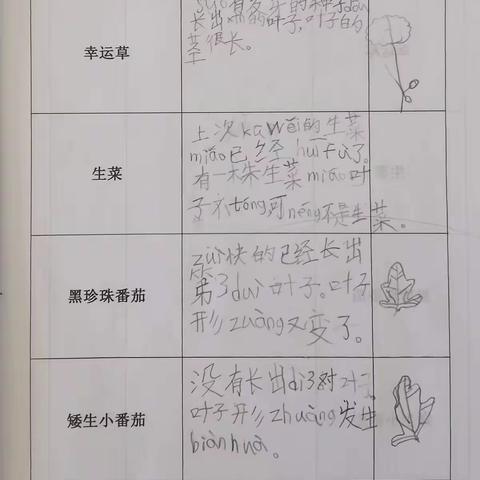 suǒ有多牙的种子dōu
长出新的叶子,叶子的
茎很长。
幸运草
上次kawēi的生菜
miáo已经huīfù了。
有一株生菜miáo叶
子不tóng,可néng不是生菜。
生菜
zuì快的已经长出
第3duì叶子。叶子
形zuàng又变了。
黑珍珠番茄
没有长出di3对叶子
叶子形zhuàng发生
biànhuà。
矮生小番茄